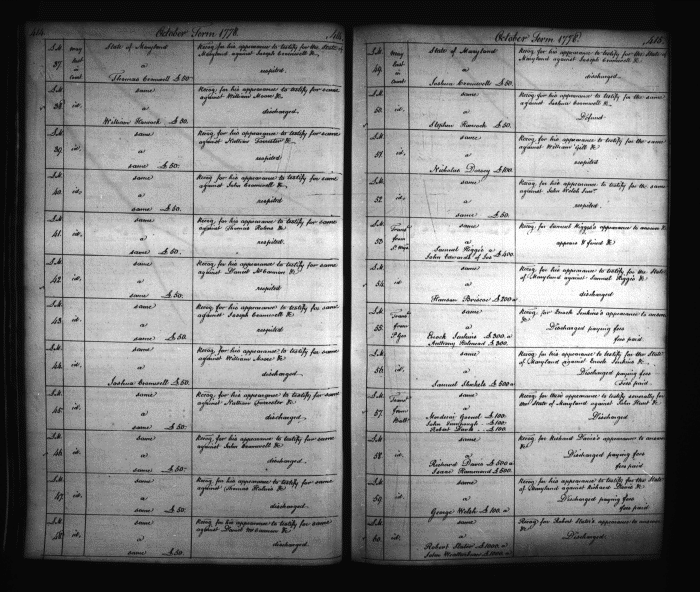 414.
October Term 1778.
414.
S.M.
37.
May
last
in
Court
State of Maryland
a
Thomas Cromwell £50.
Recog. for his appearance to testify for the State of
Maryland, against Joseph Cromwell &c
respited.
S.M.
38.
id.
same
a
William Hancock £50.
Recog. for his appearance to testify for same
against William Moore &c
discharged.
S.M.
39.
id.
same
a
same £50.
Recog. for his appearance to testify for same
against William Forrester &c
respited
S.M.
40.
id.
same
a
same £50.
Recog. for his appearance to testify for same
against John Cromwell &c
respited
S.M.
41.
id.
same
a
same £50.
Recog. for his appearance to testify for same
against Thomas &c
respited.
S.M.
42.
id.
same
a
same £50.
Recog. for his appearance to testify for same
against Daniel &c
respited
S.M.
43.
id.
same
a
same £50.
Recog. for his appearance to testify for same
against Joseph Cromwell &c
respited
S.M.
44.
id.
same
a
Joshua Cromwell £50.
Recog. for his appearance to testify for same
against William &c
discharged.
S.M.
45.
id.
same
a
same £50.
Recog. for his appearance to testify for same
against William Forrester &c
discharged.
S.M.
46.
id.
same
a
same £50.
Recog. for his appearance to testify for same
against John Cromwell &c
discharged.
S.M.
47.
id.
same
a
same £50.
Recog. for his appearance to testify for same
against Thomas &c
discharged.
S.M.
48.
id.
same
a
same £50.
Recog. for his appearance to testify for same
against Daniel &c
discharged.
October Term 1778.
415.
S.M.
49.
May
last
in
Court
State of Maryland
a
Joshua Cromwell £50.
Recog. for his appearance to testify for the State of
Maryland against Joseph Cromwell &c
discharged.
S.M.
50.
id.
same
a
Stephen Hancock £50.
Recog. for his appearance to testify for same
against Joshua Cromwell &c
S.M.
51.
id.
same
a
Nicholas Dorsey £100.
Recog. for his appearance to testify for same
against William Gill &c
respited
S.M.
52.
id.
same
a
same £50.
Recog. for his appearance to testify for the same
against John Welsh
respited.
S.M.
53.
from
same
a
Samuel Higgs a
John Edwards of £400.
Recog. for Samuel Higgs's appearance to answer
&c
appears & fined &c
S.M.
54.
id.
same
a
Hanson Briscoe £200 a
Recog. for his appearance to testify for the State
of Maryland against Samuel Higgs &c
discharged
S.M.
55.
from
same
a
Enoch Jenkins £300. a
Anthony £300.
Recog. for Enoch Jenkins's appearance to answer
&c
Discharged paying
fees
fees paid.
S.M.
56.
id.
same
a
Samuel £500 a
Recog. for his appearance to testify for the State
of Maryland against Enoch Jenkins &c
Discharged paying fees
fees paid.
S.M.
57.
from
same
a
£100.
John £100.
Robert £100.
Recog. for their appearance to testify severally for
the State of Maryland against John &c
Discharged
S.M.
58
id.
same
a
Richard Davis £500 a
Isaac Hammond £500.
Recog. for Richard Davis's appearance to answer
&c
Discharged paying fees
fees paid
S.M.
59
id.
same
a
George Welsh £100. a
Recog. for his appearance to testify for the State
of Maryland against Richard Davis &c
Discharged paying fees
fees paid.
S.M.
60.
id.
same
a
Robert Slater £1000. a
John £1000. a
Recog. for Robert Slater's appearance to answer
&c
Discharged.